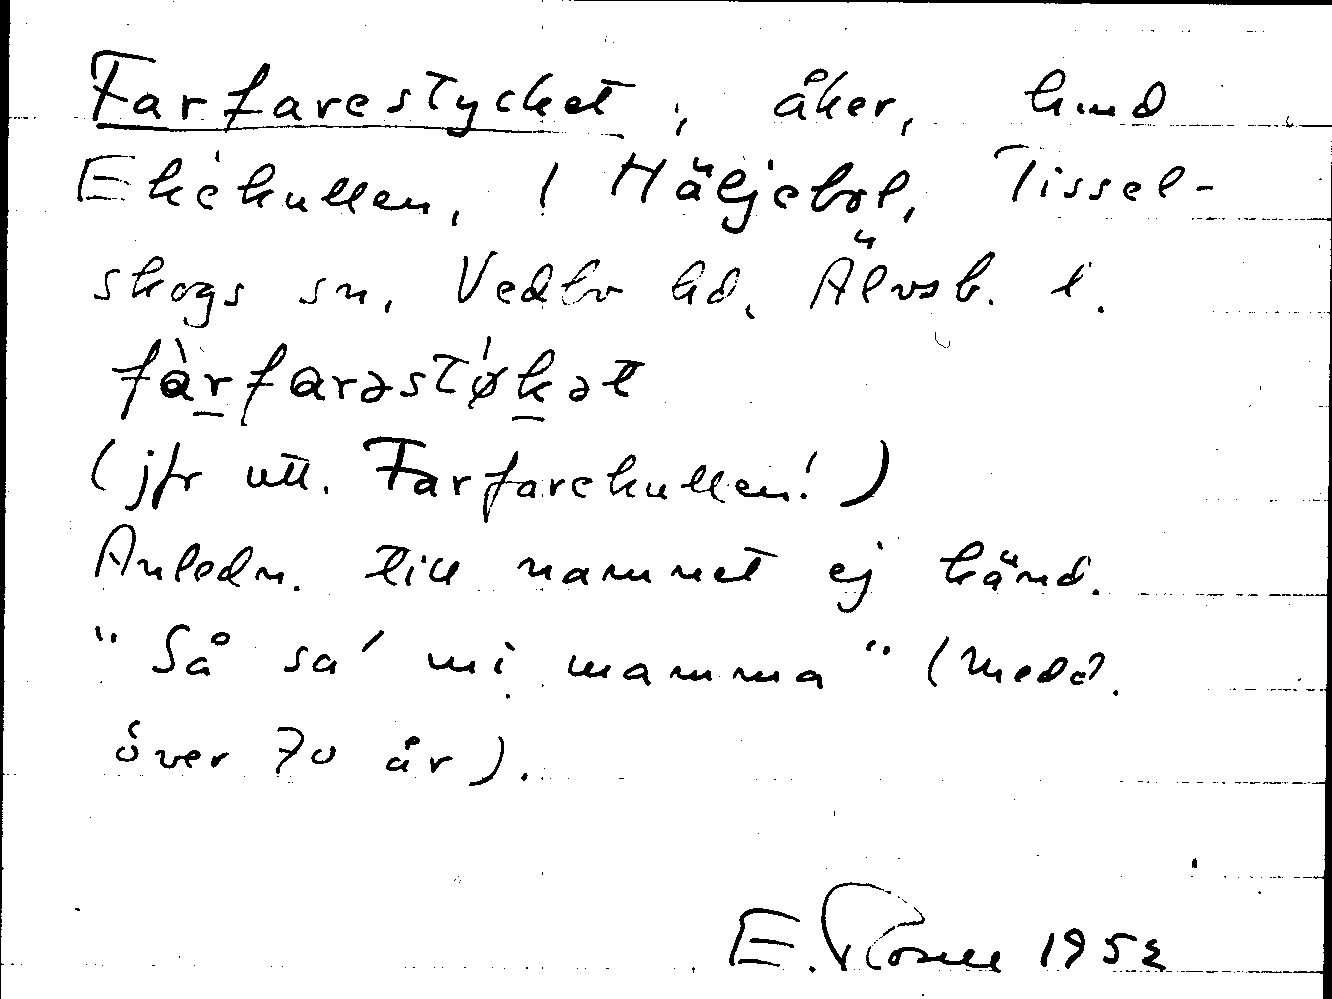 Farfarestycket, åker, hmd
Ekekullen, i Häljebol, Tissel-
skogs sn, Vedbo hd, Älvsb. l.
fàrfarəstø̀kət
(jfr utt. Farfarekullen!)
Anledn. till namnet ej känd.
"Så sa' mi mamma" (medd.
över 70 år).
E. Rosell 1952